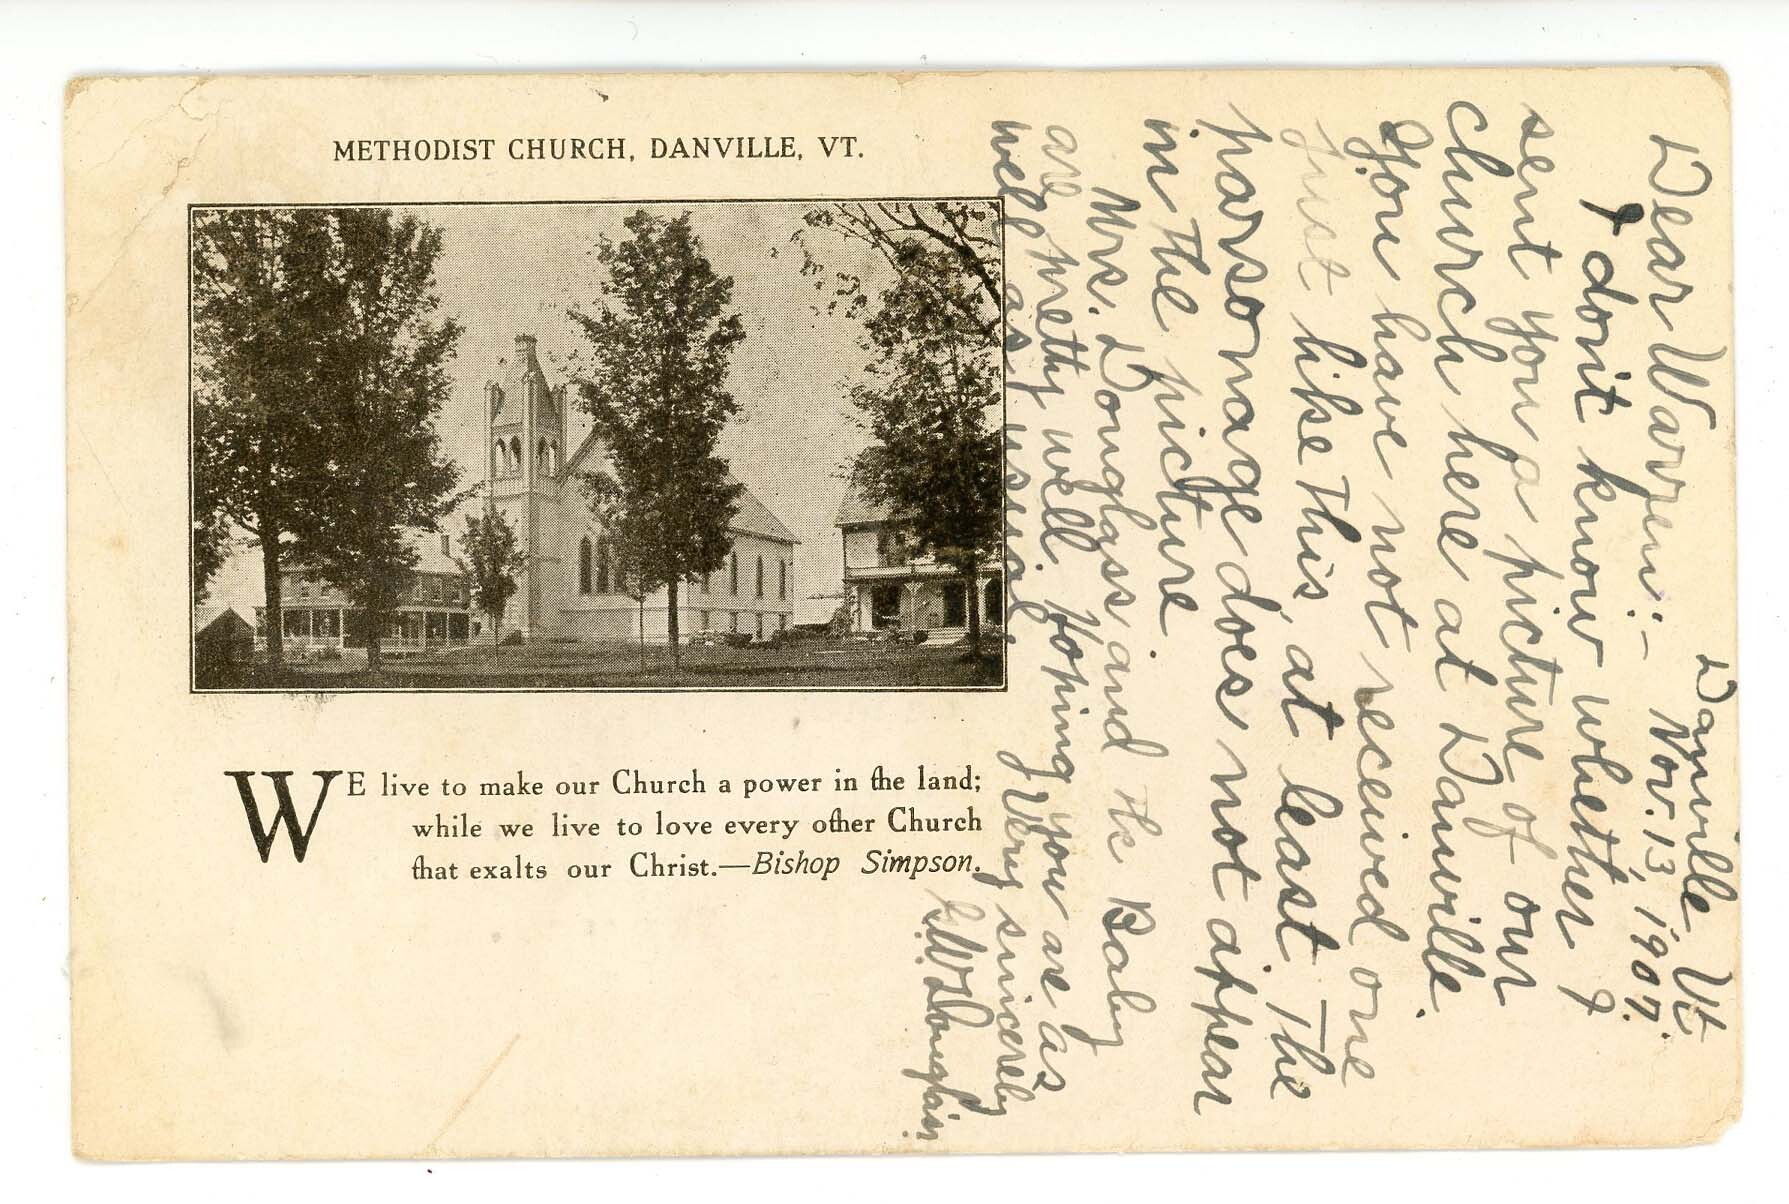 METHODIST CHURCH, DANVILLE, VT.
WE live to make our Church a power in the land;
while we live to love every other Church
that exalts our Christ.—Bishop Simpson.
Danville Vt
Nov. 13, 1907.
Dear Warren:-
I don't know whether I
sent you a picture of our
church here at Danville.
You have not received one
just like this, at least. The
parsonage does not appear
in the picture.
Mrs. Douglass and the Baby
are pretty well. Hoping you are as
well as usual, Very sincerely
G.W. Douglass.